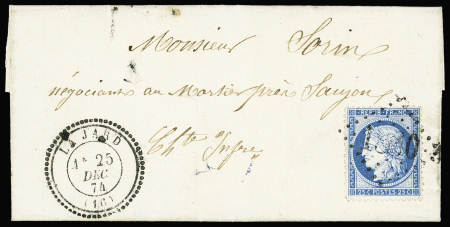 Monsieur Sorin
négociant au Martier près Saujon
Chte Infre
LA JARD
25
DEC
74
(16)
REPUB. FRANC.
25 C POSTES 25 C